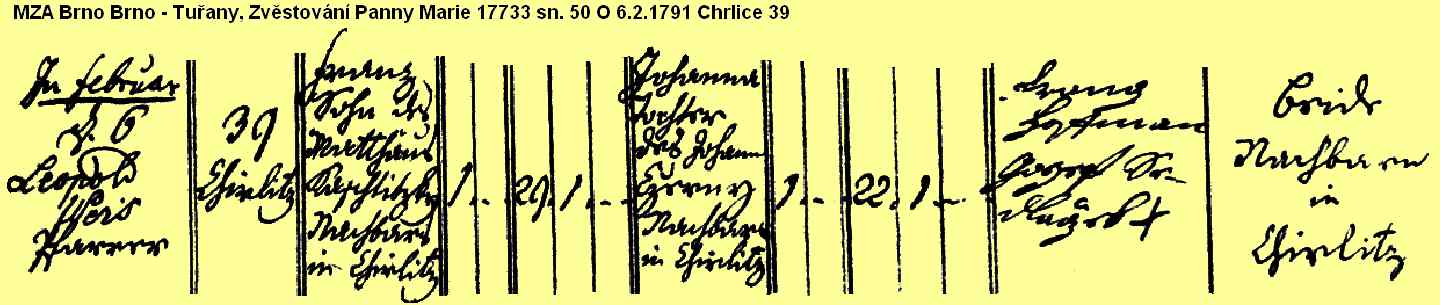 MZA Brno Brno - Tuřany, Zvěstování Panny Marie 17733 sn. 50 O 6.2.1791 Chrlice 39
In Februar
d. 6
Leopold
Pfarrer
39
Chirlitz
Franz
Sohn des
Matthäus
Nachbars
in Chirlitz
1
29
1
Johanna
Tochter
des Johann
Czerny
Nachbars
in Chirlitz
1
22
1
Franz
Hofman
Joseph
beide
Nachbarn
in
Chirlitz